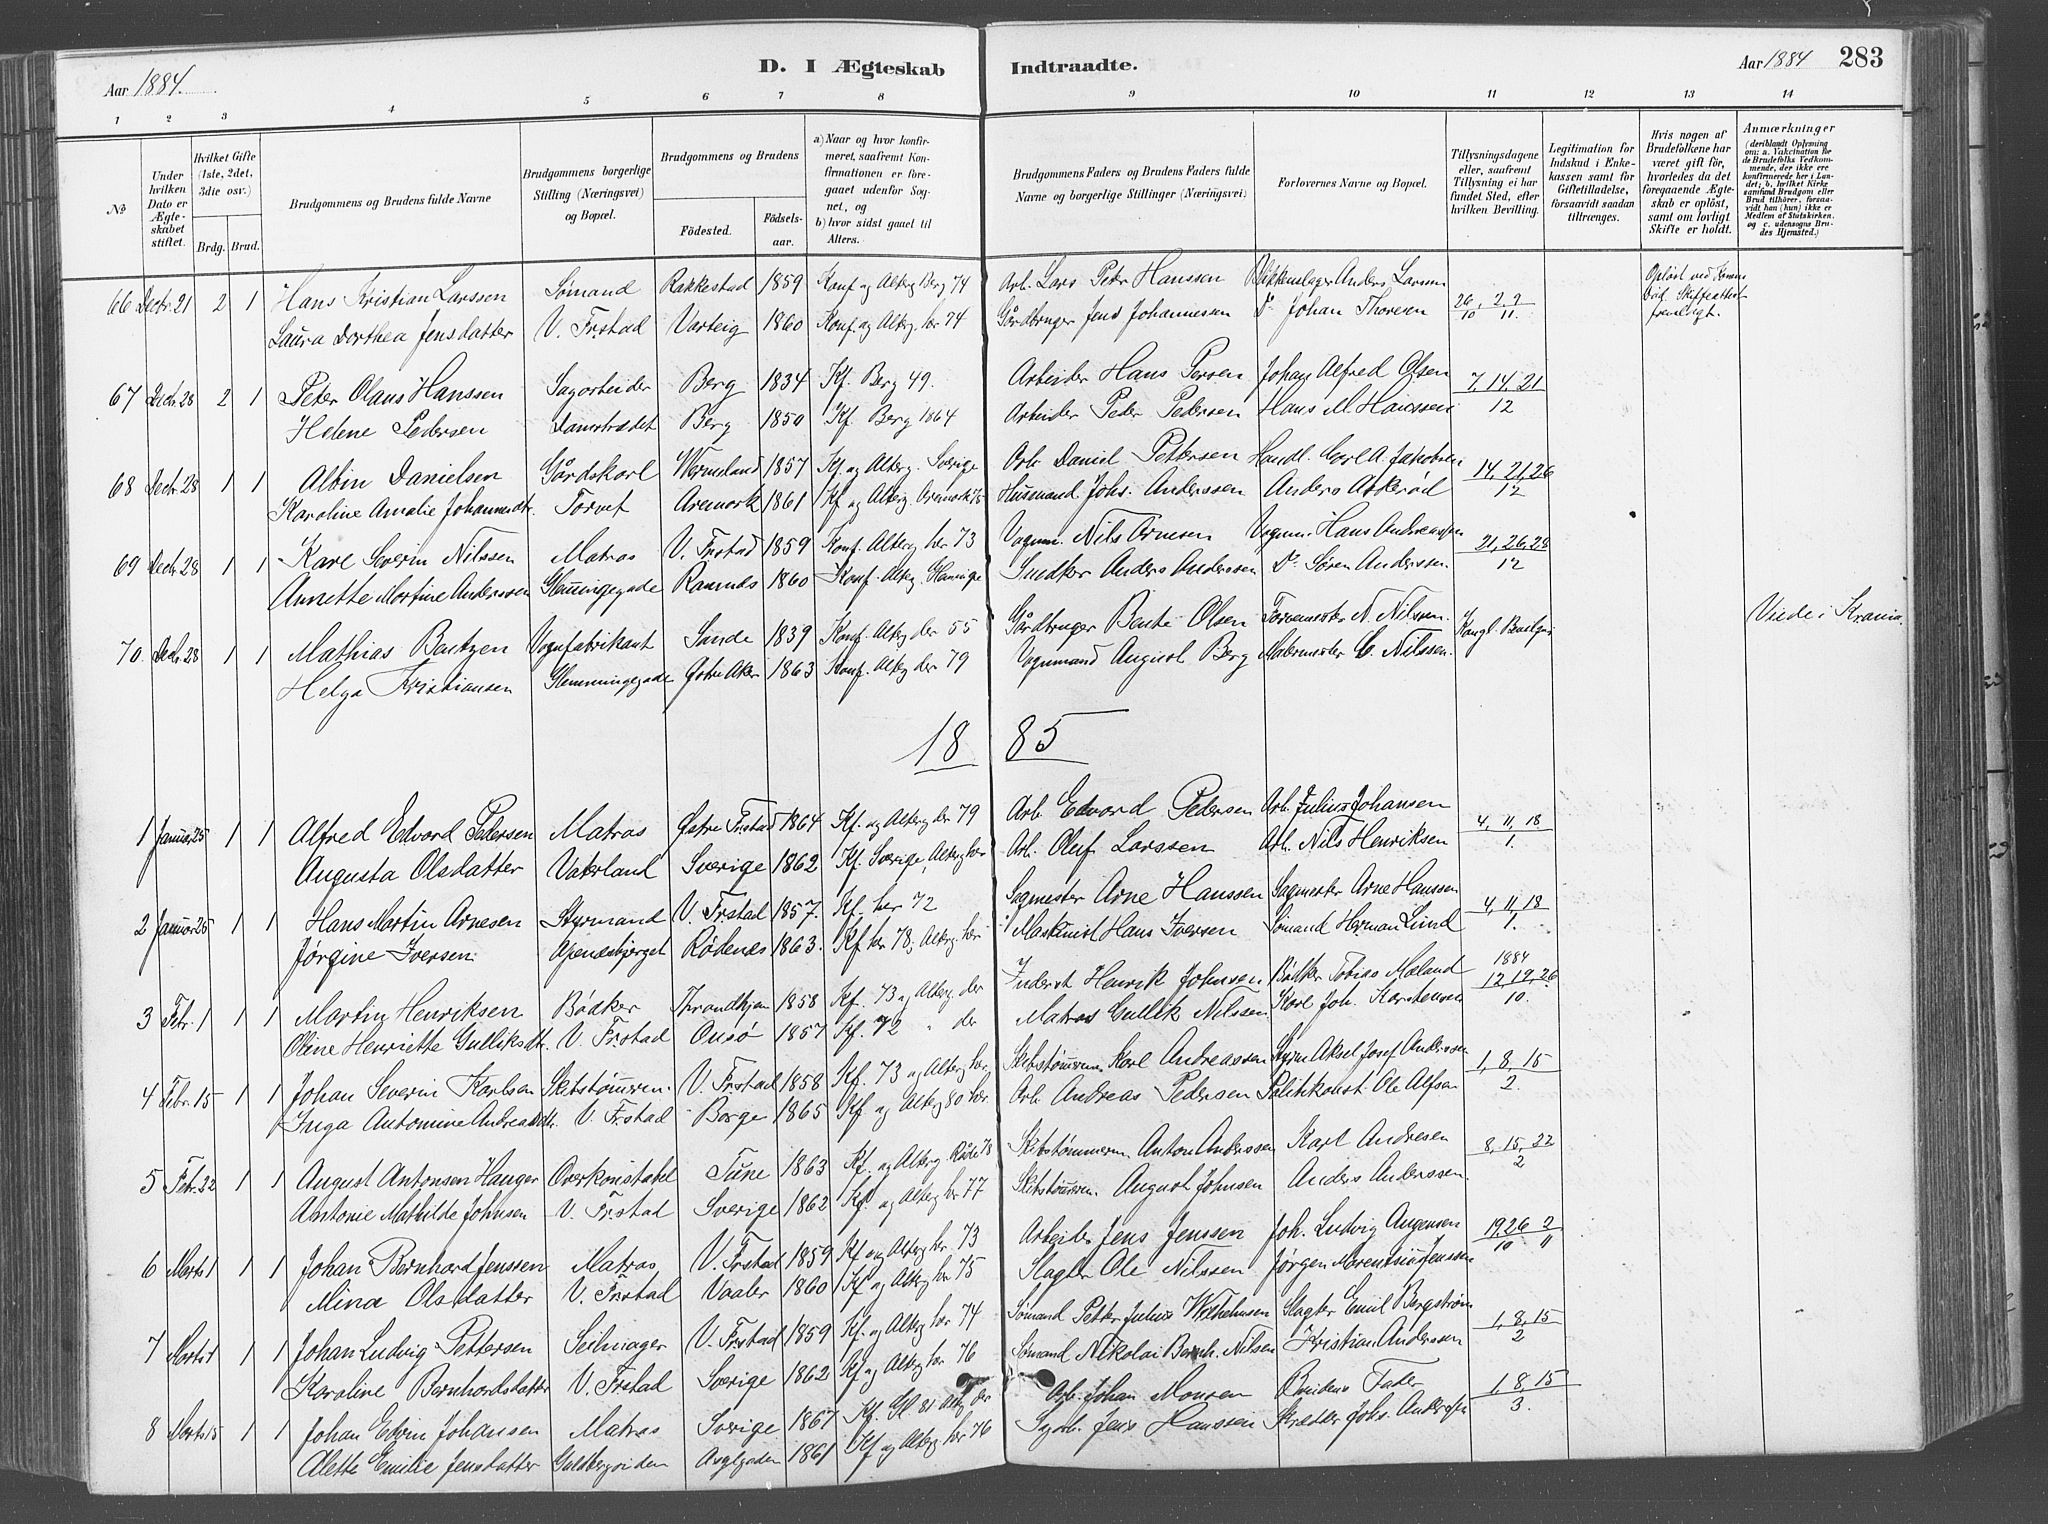 Aar 1884.
D. I Ægteskab Indtraadte.
Aar 1884 283
1 2 3 4 5 6 7 8 9 10 11 12 13 14
No
Under hvilken Dato er Ægteskabet stiftet.
Hvilket Gifte (1ste, 2det, 3die osv.)
Brdg. Brud.
Brudgommens og Brudens fulde Navne
Brudgommens borgerlige Stilling (Næringsvei) og Bopæl.
Brudgommens og Brudens
Fødested.
Fødselsaar.
a) Naar og hvor konfirmeret, saafremt Konfirmationen er foregaaet udenfor Sognet, og
b) hvor sidst gaaet til Alters.
Brudgommens Faders og Brudens Faders fulde Navne og borgerlige Stillinger (Næringsvei)
Forlovernes Navne og Bopæl.
Tillysningsdagene eller, saafremt Tillysning ei har fundet Sted, efter hvilken Bevilling.
Legitimation for Indskud i Enkekassen samt for Giftetilladelse, forsaavidt saadan tiltrænges.
Hvis nogen af Brudefolkene har været gift før, hvorledes da det foregaaende Ægteskab er opløst, samt om lovligt Skifte er holdt.
Anmærkninger (deriblandt Oplysning om: a. Vakcination for de Brudefolks Vedkommende, der ikke ere konfirmerede her i Landet; b. hvilket Kirkesamfund Brudgom eller Brud tilhører, forsaavidt han (hun) ikke er Medlem af Statskirken, og c. udensogns Brudes Hjemsted.)
66 Dectr. 21 2 1 Hans Kristian Larssen Sømand Rakkestad 1859 Konf. og Alterg. Berg 74 Arb. Lars Peter Hanssen Anders Larsen 26 2 9
Laura Dorthea Jensdatter V. Frstad Varteig 1860 Konf. og Alterg. her 74 Gårdbruger Jens Johannesen Do Johan Thoresen 10 11
67 Dectr. 28 2 1 Peter Olaus Hanssen Sagarbeider Berg 1834 Kf. Berg 49. Arbeider Hans Persen Johan Alfred Olsen 7, 14, 21
Helene Pedersen Damstrædet Berg 1850 Kf. Berg 1864 Arbeider Peder Pedersen Hans M Hanssen 12
68 Dectr. 28 1 1 Albin Danielsen Gårdskarl Wermeland 1857 Kf. og Alterg. Sverige Arb. Daniel Pettersen Handl. Carl A. Jakobsen 14, 21, 26
Karoline Amalie Johannesdtr. Torvet Aremark 1861 Kf. og Alterg. Aremark 75 Husmand Johs. Anderssen Anders 12
69 Dectr. 28 1 1 Karl Severin Nilssen Matros V. Frstad 1859 Konf. Alterg. her 73 Vognm. Nils Arnesen Vognm. Hans Andreassen 21, 26, 28
Annette Martine Anderssen Glemmingegade Ramnes 1860 Konf. Alterg. Glemmige Snedker Anders Anderssen Do Søren Anderssen 12
70 Dectr. 28 1 1 Mathias Bentzen Vognfabrikant Sande 1839 Konf. Alterg der 55 Gårdbruger Bente Olsen N. Nilssen. Kongl. Viede i Krania.
Helga Kristiansen Glemmingegade Østre Aker 1863 Konf. Alterg der 79 Vognmand August Berg Malermester C. Nilssen.
18 85
1 Januar 25 1 1 Alfred Edvard Pedersen Matros Østre Frstad 1864 Kf. og Alterg der 79 Arb. Edvard Pedersen Arb. Julius Johansen 4, 11, 18
Augusta Olsdatter Vaterland Sverige 1862 Kf. Sverige, Alterg her Arb. Oluf Larssen Arb. Nils Henriksen 1.
2 Januar 25 1 1 Hans Martin Arnesen Styrmand V. Frstad 1857. Kf. her 72 Sagmester Arne Hanssen Sagmester Arne Hanssen 4, 11, 18
Jørgine Iversen Apenesbjerget Rødenæs 1863. Kf. her 78, Alterg. her Maskinist Hans Iversen Sømand Herman Lund 1.
1884
3 Febr. 1 1 1 Martin Henriksen Bødker Throndhjem 1858 Kf. 73 og Alterg. der Inderst Henrik Johnsen Bødker Tobias Mæland 12, 19, 26
Oline Henriette Gulliksdtr. V. Frstad Onsø 1857 Kf. 72 " der Matros Gullik Nilssen Karl Joh. Karstensen 10.
4 Febr. 15 1 1 Johan Severin Karlsen Skibstømmerm. V. Frstad 1858 Kf. 73 og Alterg her Skibstømmerm. Karl Andreassen Styrm Aksel Josef Anderssen 1, 8, 15
Inga Antomine Andreasdtr. V. Frstad Borge 1865 Kf. og Alterg 80 her Arb. Andreas Pedersen Politikonst. Ole Alfsen 2.
5 Febr. 22 1 1 August Antonsen Hauger Overkonstabel Tune 1863 Kf. og Alterg. Råde 78 Skibstømmerm. Anton Anderssen Karl Andresen 8, 15, 22
Antonie Mathilde Johnsen V. Frstad Sverige 1862 Kf. og Alterg her 77 Skibstømrm. August Johnsen Anders Anderssen 2
6 Marts 1 1 1 Johan Bernhard Jenssen Matros V. Frstad 1859 Kf og Alterg her. 73 Arbeider Jens Jenssen Joh. Ludvig Augensen 19, 26 2
Mina Olsdatter V. Frstad Vaaler 1860 Kf og Alterg her 75 Slagter Ole Nilssen Jørgen Jenssen 10 11
7 Marts 1 1 1 Johan Ludvig Pettersen Seilmager V. Frstad 1859 Kf. og Alterg her 74 Sømand Petter Julius Wilhelmsen Slagter Emil Bergstrøm 1, 8, 15
Karoline Bernhardsdatter V. Frstad Sverige 1862 Kf og Alterg her 76 Sømand Nikolai Bernh. Nilsen Kristian Anderssen 2
8 Marts 15 1 1 Johan Edvin Johansen Matros Sverige 1867 Kf. Gl 81 Alterg der Arb. Johan Monsen Brudens Fader 1, 8, 15
Alette Emilie Jensdatter Guldbergsiden 1861 Kf og Alterg her 76 Jens Hanssen Johs. 3.